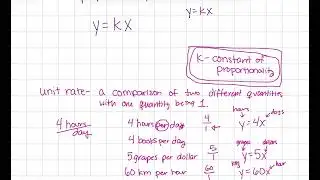 y=kx
y=kx
k- constant of
proportionality
unit rate- a comparison of two different quantities
with one quantity being 1.
4 hours
day
4 hours per day
4
1
hours
days
y=4x
4 books per day
5 grapes per dollar
5
1
grapes
y=5x
60 km per hour
60
1
km
hour
y=60x